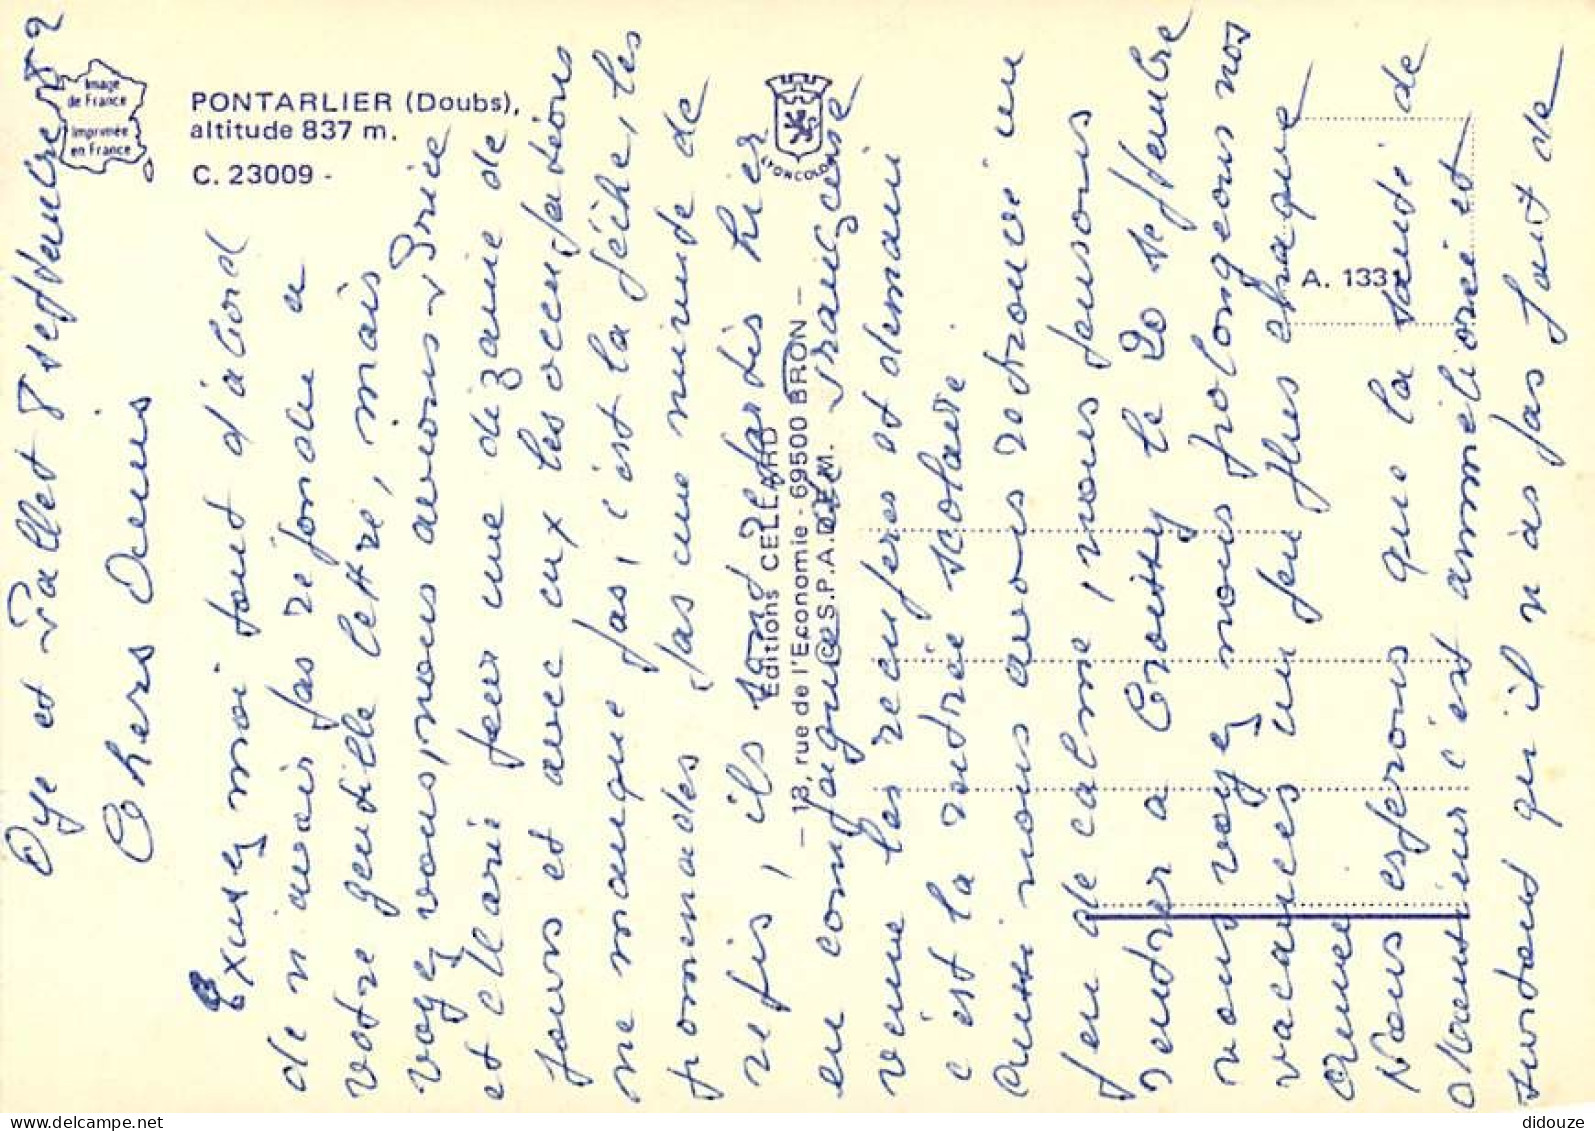 Image
de France
Imprimée
en France
PONTARLIER (Doubs),
altitude 837 m.
C. 23009 -
LYONCOLOR
Editions CELLARD
- 13, rue de l'Economie - 69500 BRON -
C.S.P.A.D.E.M.
A. 1331
Oye et Pallet 8 septembre 82
Chers Amis
Excusez moi tout d'abord
de n'avoir pas répondu a
votre gentille lettre, mais
voyez vous, nous avions Brice
et Marie pour une dizaine de
jours et avec eux les occupations
ne manque pas, c'est la pêche, les
promenades, pas une minute de
répis, ils sont partis hier
en compagnie de Françoise
venue les recuperes et demain
c'est la rentrée scolaire.
Aussi nous avons retrouvé un
peu de calme, nous pensons
rentrer a Croissy le 20 septembre
vous voyez nous prolongeons nos
vacances un peu plus chaque
année
Nous esperons que la santé de
Monsieur c'est ammeliorée et
surtout qu'il n'as pas fait de
didouze